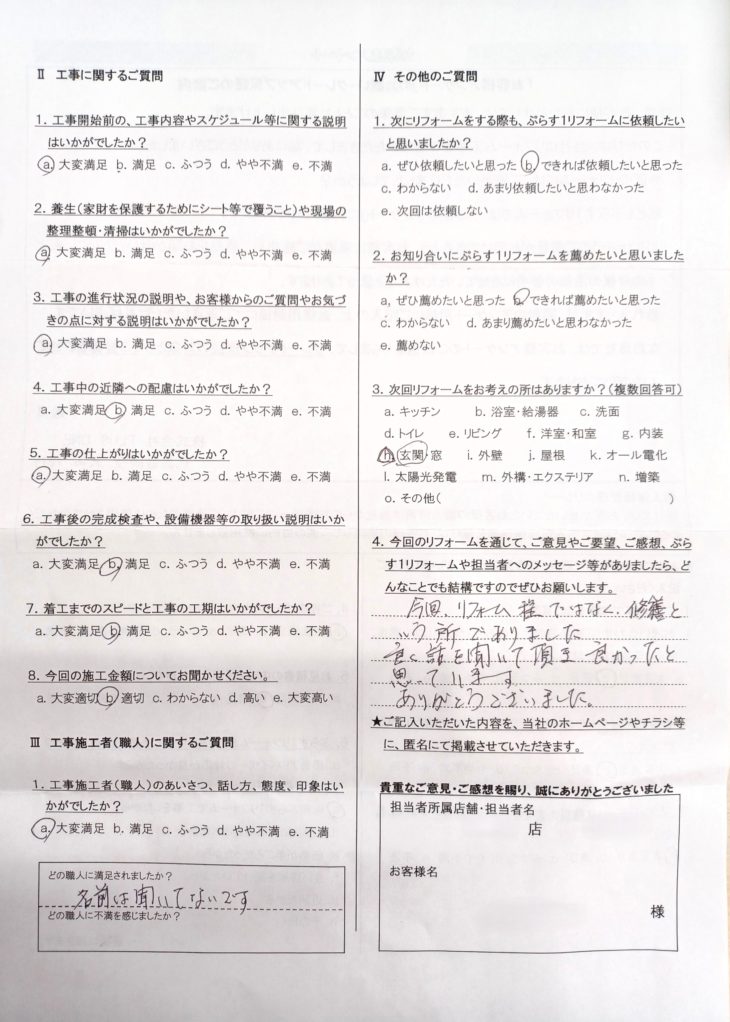 Ⅱ 工事に関するご質問
1. 工事開始前の、工事内容やスケジュール等に関する説明
はいかがでしたか？
a. 大変満足 b. 満足 c. ふつう d. やや不満 e. 不満
2. 養生(家財を保護するためにシート等で覆うこと)や現場の
整理整頓・清掃はいかがでしたか？
a. 大変満足 b. 満足 c. ふつう d. やや不満 e. 不満
3. 工事の進行状況の説明や、お客様からのご質問やお気づ
きの点に対する説明はいかがでしたか？
a. 大変満足 b. 満足 c. ふつう d. やや不満 e. 不満
4. 工事中の近隣への配慮はいかがでしたか？
a. 大変満足 b. 満足 c. ふつう d. やや不満 e. 不満
5. 工事の仕上がりはいかがでしたか？
a. 大変満足 b. 満足 c. ふつう d. やや不満 e. 不満
6. 工事後の完成検査や、設備機器等の取り扱い説明はいか
がでしたか？
a. 大変満足 b. 満足 c. ふつう d. やや不満 e. 不満
7. 着工までのスピードと工事の工期はいかがでしたか？
a. 大変満足 b. 満足 c. ふつう d. やや不満 e. 不満
8. 今回の施工金額についてお聞かせください。
a. 大変適切 b. 適切 c. わからない d. 高い e. 大変高い
Ⅲ 工事施工者(職人)に関するご質問
1. 工事施工者(職人)のあいさつ、話し方、態度、印象はい
かがでしたか？
a. 大変満足 b. 満足 c. ふつう d. やや不満 e. 不満
どの職人に満足されましたか？
名前は聞いてないです
どの職人に不満を感じましたか？
Ⅳ その他のご質問
1. 次にリフォームをする際も、ぷらす1リフォームに依頼したい
と思いましたか？
a. ぜひ依頼したいと思った b. できれば依頼したいと思った
c. わからない d. あまり依頼したいと思わなかった
e. 次回は依頼しない
2. お知り合いにぷらす1リフォームを薦めたいと思いました
か？
a. ぜひ薦めたいと思った b. できれば薦めたいと思った
c. わからない d. あまり薦めたいと思わなかった
e. 薦めない
3. 次回リフォームをお考えの所はありますか？(複数回答可)
a. キッチン b. 浴室・給湯器 c. 洗面
d. トイレ e. リビング f. 洋室・和室 g. 内装
h. 玄関・窓 i. 外壁 j. 屋根 k. オール電化
l. 太陽光発電 m. 外構・エクステリア n. 増築
o. その他( )
4. 今回のリフォームを通じて、ご意見やご要望、ご感想、ぷら
す1リフォームや担当者へのメッセージ等がありましたら、ど
んなことでも結構ですのでぜひお願いします。
今回、リフォーム程ではなく、修繕と
いう所でありました
良く話を聞いて頂き良かったと
思っています
ありがとうございました。
★ご記入いただいた内容を、当社のホームページやチラシ等
に、匿名にて掲載させていただきます。
貴重なご意見・ご感想を賜り、誠にありがとうございました
担当者所属店舗・担当者名
店
お客様名
様